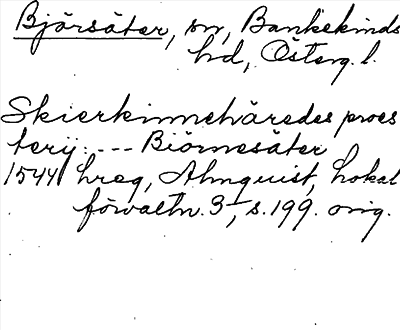 Bjärsäter, sn, Bankekinds
hd, Österg. l.
Skierkinnehäredes proes
terij: --- Biörnesäter
1544 hreg, Almquist, Lokal
förvaltn. 3, s. 199. orig.